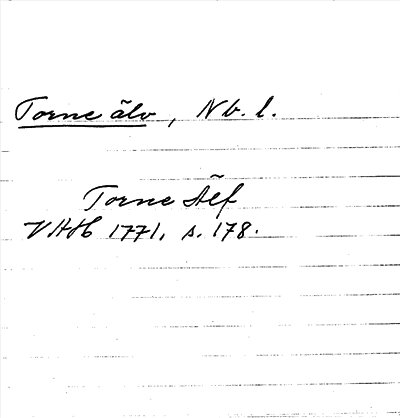 Torne älv, Nb. l.
Torne Älf
VAH 1771, s. 178.